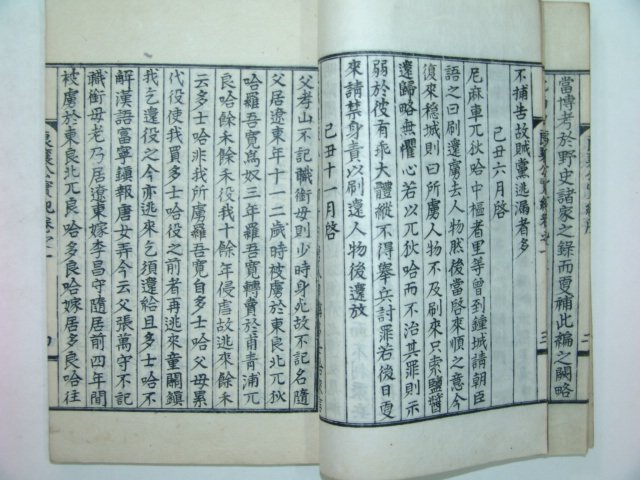 當博考於野史諸家之錄而更補此編之闕略
不捕告故賊黨逃漏者多
己丑六月啓
尼麻車兀狄哈中樞者里等曾到鍾城請朝臣
語之曰刷還虜去人物然後當啓來順之意今
復來穩城則曰所虜人物不及刷來只索鹽醬
還歸略無懼心若以兀狄哈而不治其罪則示
弱於彼有虧大體縱不得擧兵討罪若後日更
來請禁身責以刷還人物後還放
己丑十一月啓
父孝山不記職銜母則少時身死故不記名隨
父居遼東年十二歲時被虜於東良北兀狄
哈羅吾寬爲奴三年羅吾寬轉賣於甫青浦兀
良哈餘禾餘禾役我十餘年侵虐故逃來餘禾
云多士哈非我所虜羅吾寬自多士哈父母累
代役使我買多士哈役之前者再逃來童關鎭
我乞還役之今亦逃來乞須還給且多士哈不
解漢語富寧鎭報唐女弄今云父張萬守不記
職銜母老乃居遼東嫁李昌守隨居前四年間
被虜於東良北兀良哈多良哈嫁居多良哈往
襄公實紀卷之一